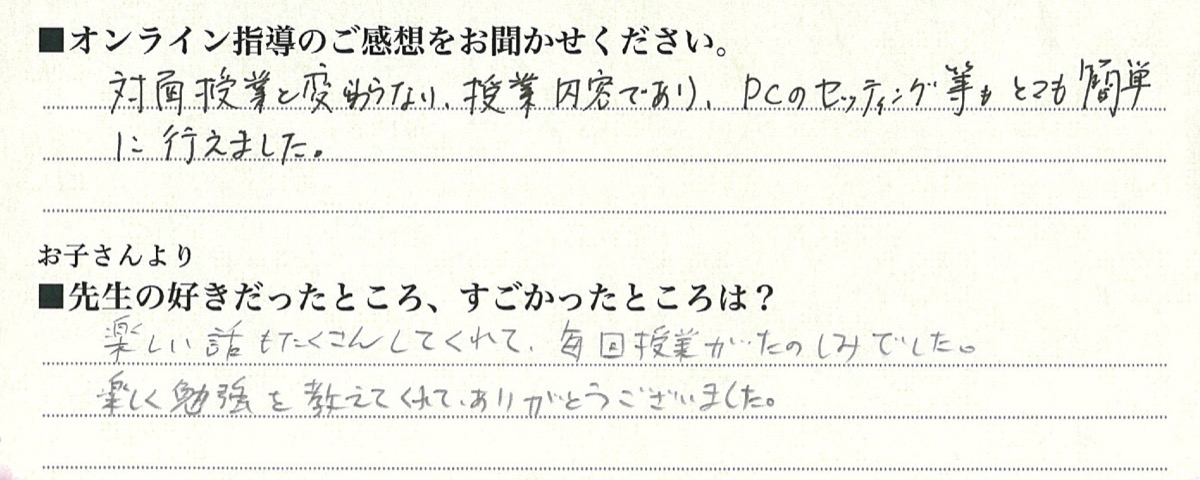 ■オンライン指導のご感想をお聞かせください。
対面授業と変わらない、授業内容であり、PCのセッティング等もとても簡単
に行えました。
お子さんより
■先生の好きだったところ、すごかったところは？
楽しい話もたくさんしてくれて、毎回授業がたのしみでした。
楽しく勉強を教えてくれて、ありがとうございました。